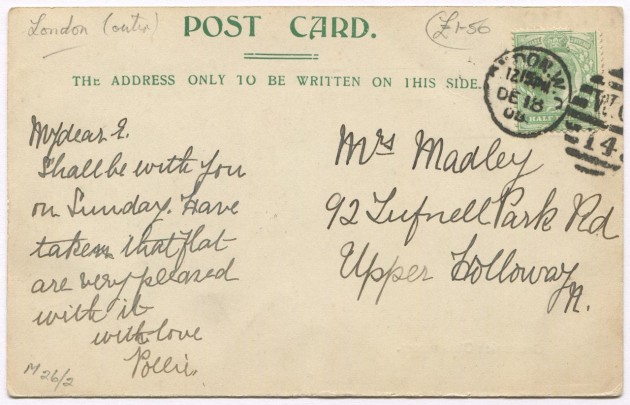 London (outer)
£1-50
POST CARD.
THE ADDRESS ONLY TO BE WRITTEN ON THIS SIDE.
DON.W.C
12 15 PM
DE 18
HALF
W.C
14
My dear E.
Shall be with you
on Sunday. Have
taken that flat
are very pleased
with it
with love
Pollie.
M 26/2
Mrs Madley
92 Tufnell Park Rd
Upper Holloway
N.